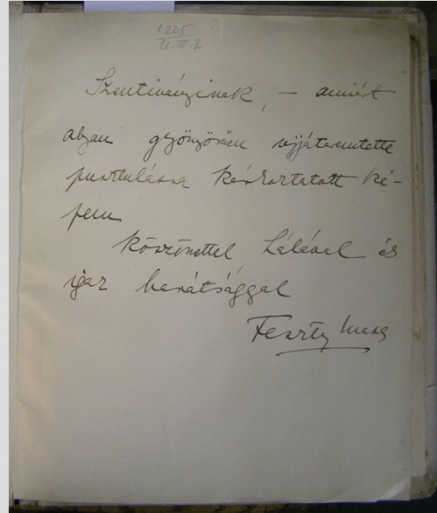 1225
U.III.2
Szentiványinak, – amiért
olyan gyönyörűen ujjáteremtette
pusztulásra kárhoztatott ké-
pem
Köszönettel hálával és
igaz barátsággal
Feszty Masa